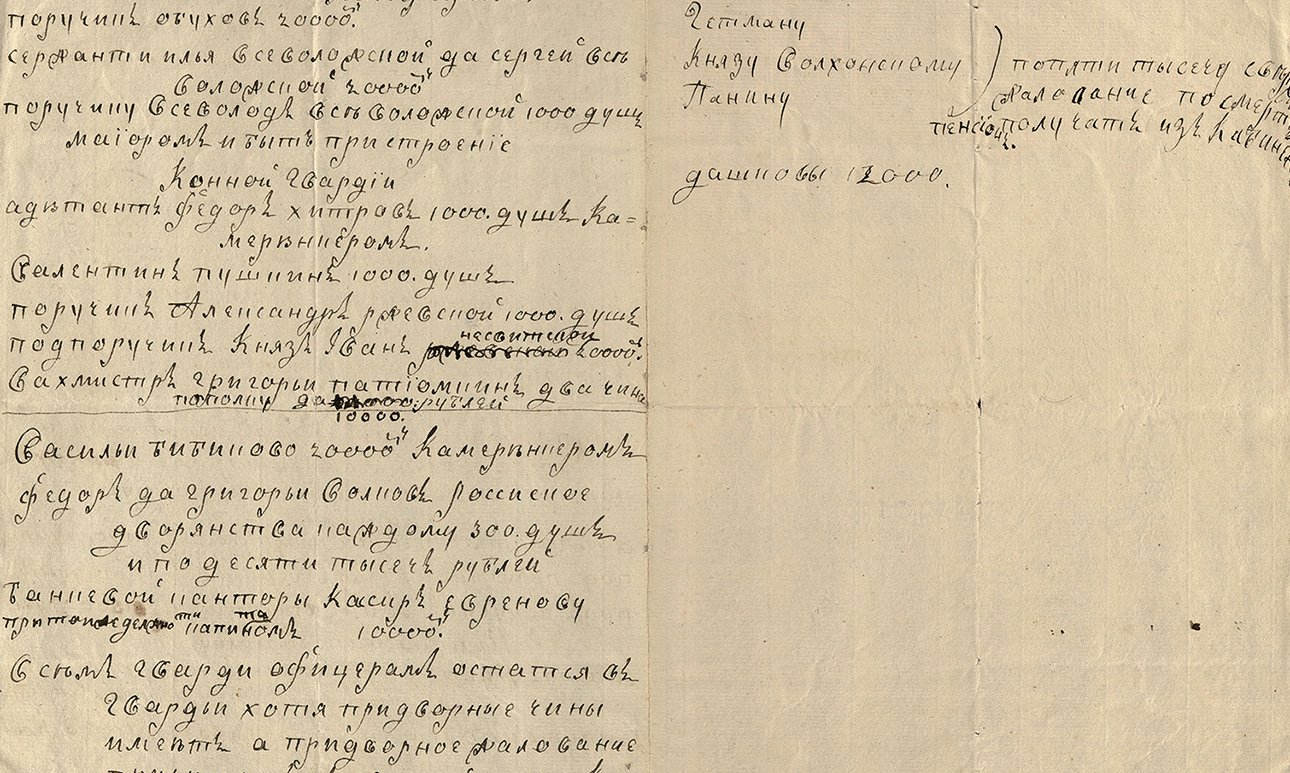 поручикъ обуховъ 20000.
сержанти илья Всеволожской да сергей Всѣ
воложской 20000
поручику Всеволодъ Всѣволожской 1000 душъ
маіоромъ и быть при строеніе
Конной Гвардіи
адютантъ Федоръ хитровъ 1000. душъ Ка=
меръниеромъ.
Валентинъ пушкинъ 1000. душъ
поручикъ Александръ ржевской 1000. душъ
несвитской
подпоручикъ Князь Іванъ 20000.
Вахмистръ григорьи патіомкинъ два чина
пополку да рублей
10000.
Васильи бибиково 20000 Камеръниеромъ
федоръ да григорьи Волковъ Россиское
дворянства каждому 300. душъ
и по десяти тысечъ рублей
банковой канторы Касиръ Евренову
10000.
Всѣмъ гварди офицерамъ остатся въ
Гвардьи хотя придворные чины
имеютъ а придворное жалование
Гетману
Князу Волхонскому
Панину
попяти тысечу
жалование по смерть
пенсіонъ получать изъ Кабин
дашковы 12000.